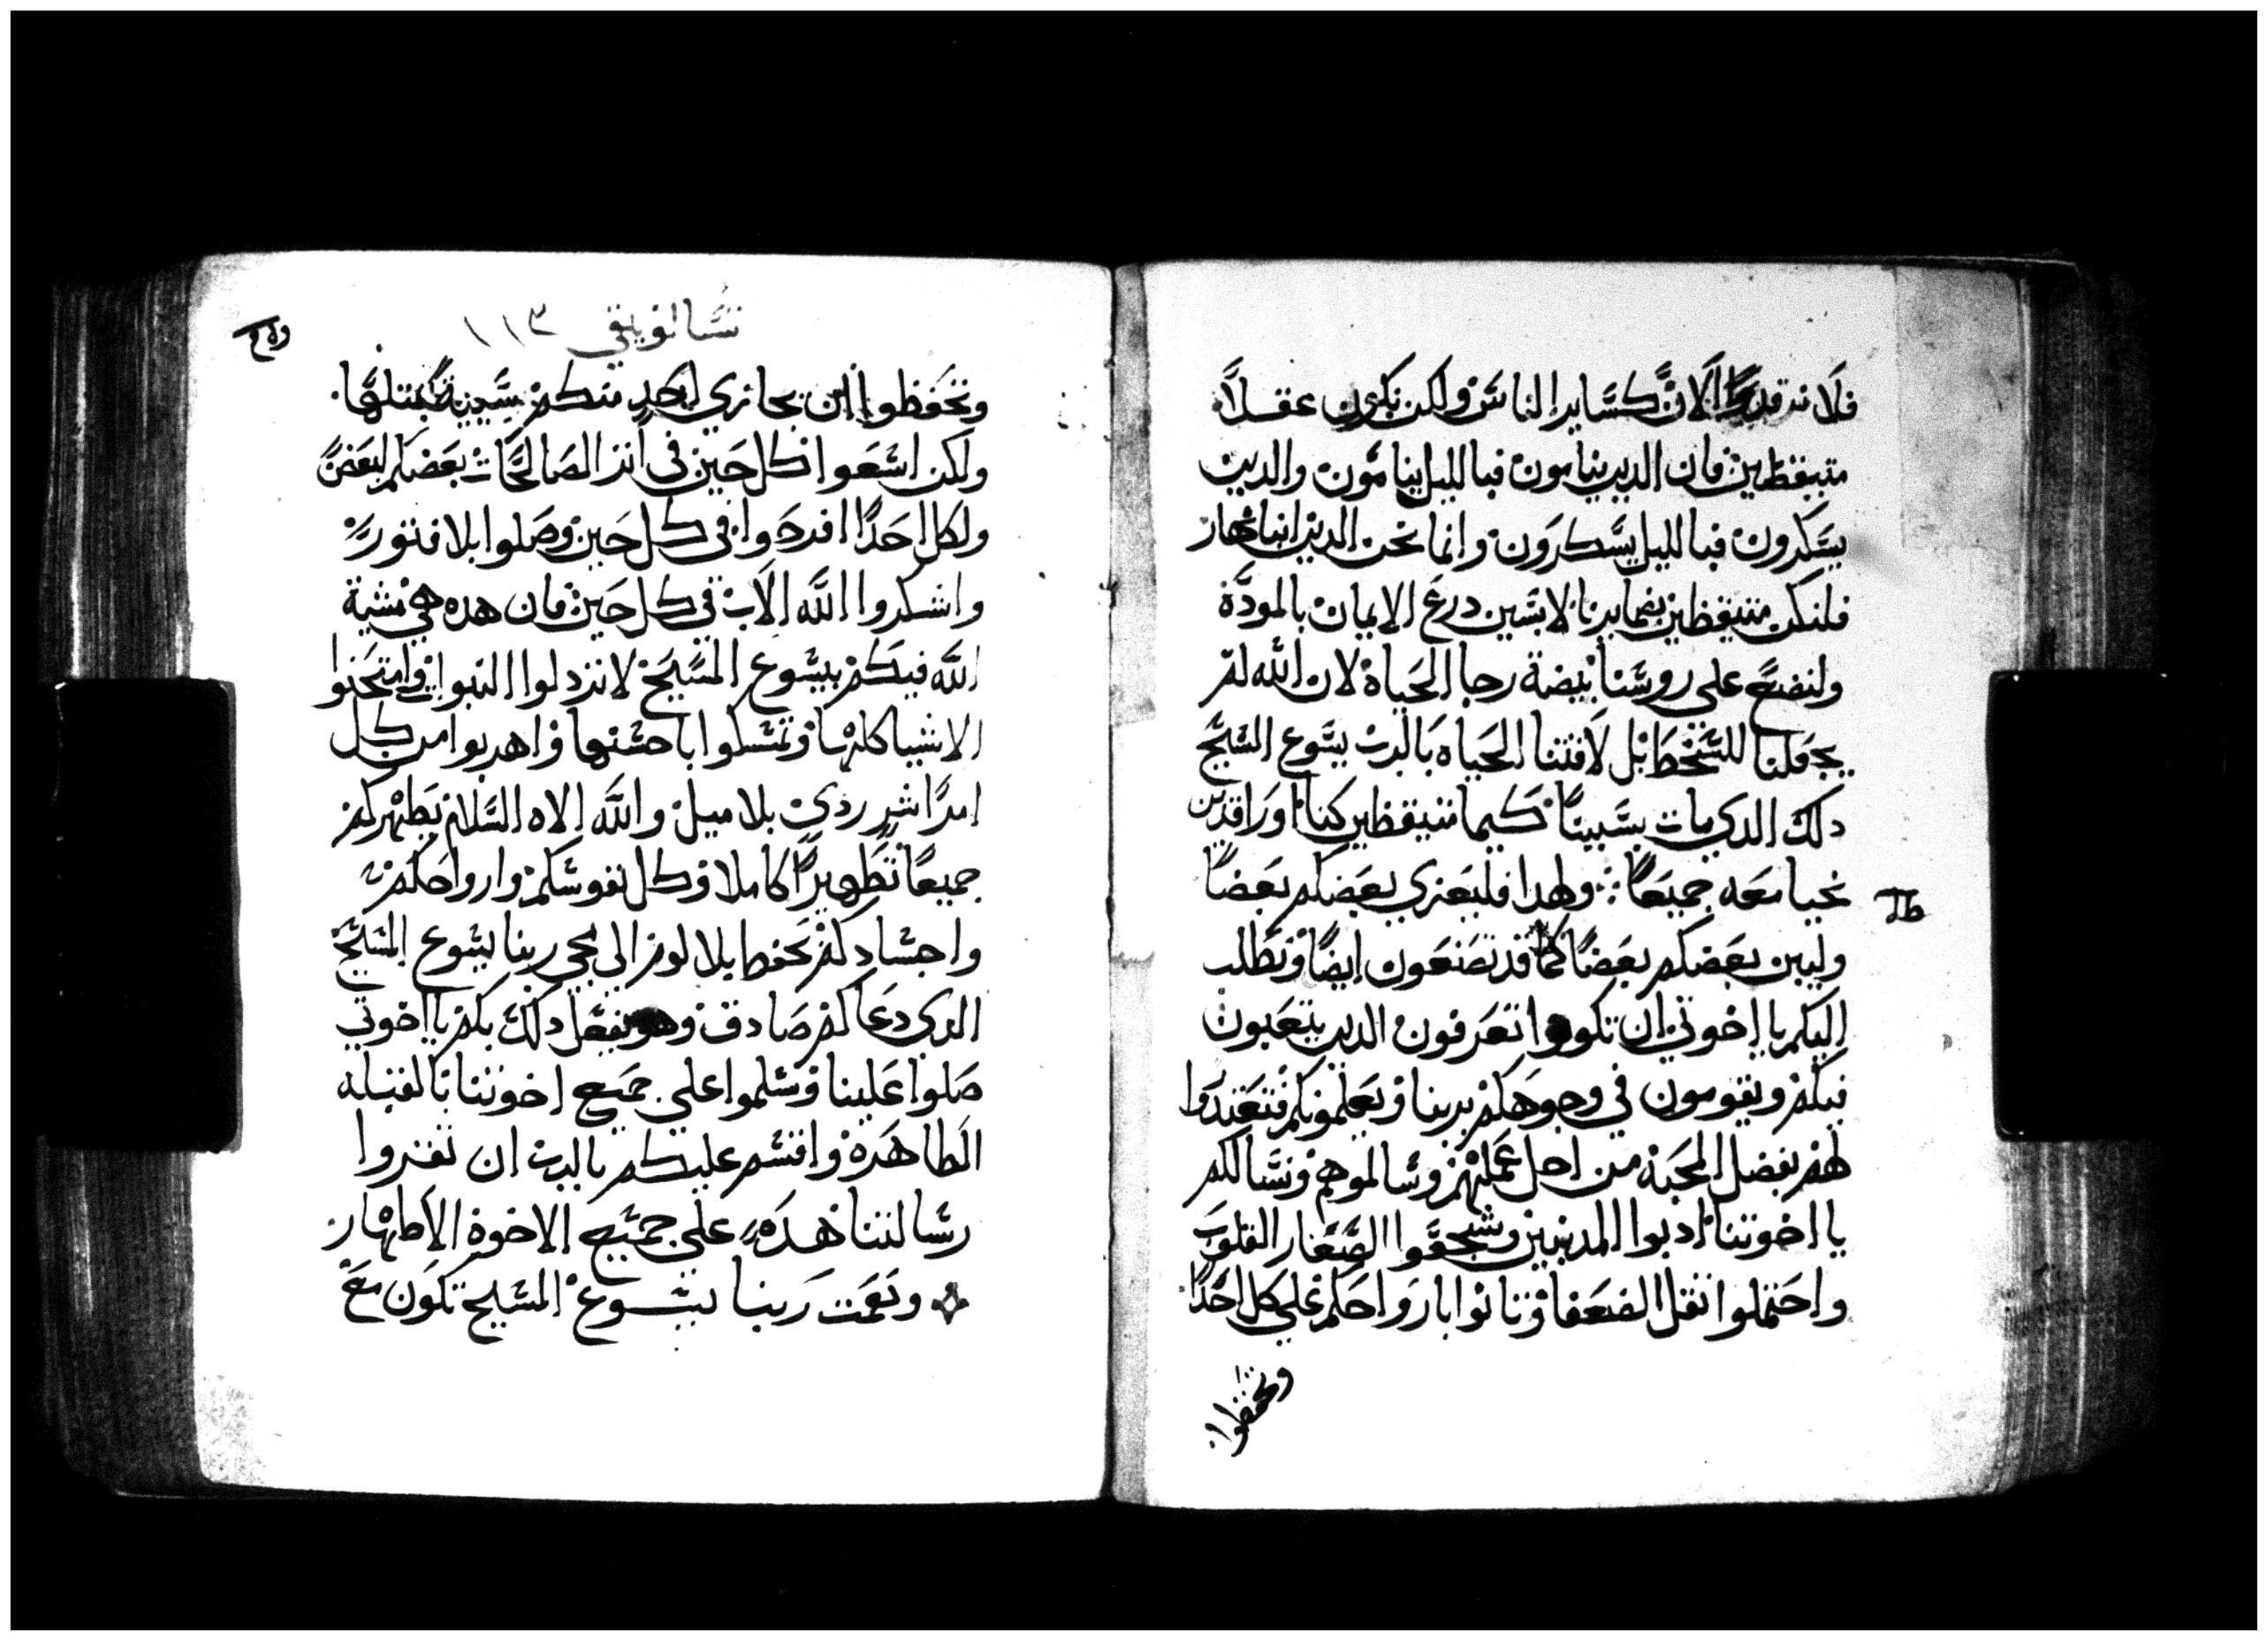 فلا نرقد الان كساير الناس ولكن نكون عقلا
متيقظين فان الدين ينامون فبالليل ينامون والدين
يسكرون فبالليل يسكرون وانما نحن الدين ابنا نهار
فلنكن متيقظين بضمايرنا لابسين درع الايمان بالمودة
ولنضع على روسنا بيضة رجا الحياة لان الله لم
يجعلنا للسخط بل لاقتنا الحياه بالرب يسوع المسيح
دلك الدي مات بسببنا كيما متيقظين كنا او راقدين
نحيا معه جميعا ⁘ ولهدا فليعزي بعضكم بعضا
وليبن بعضكم بعضا كما قد تصنعون ايضا ونطلب
اليكم يا اخوتي ان تكونوا تعرفون الدين يتعبون
فيكم ويقومون في وجوهكم بربنا ويعلمونكم فتعتدوا
لهم بفضل المحبة من اجل عملهم وسالموهم ونسالكم
يا اخوتنا ادبوا المدنبين وشجعوا الصغار القلوب
واحتملوا ثقل الضعفا وتانوا بارواحكم على كل احدا
وتحفظوا
تسالونيقي ١١٣
وتحفظوا اين يجازي احد منكم بسيية بمتلها
ولكن اسعوا كل حين في اتر الصالحات بعضكم لبعض
ولكل احدا افرحوا في كل حين وصلوا بلا فتور
واشكروا الله الاب في كل حين فان هده هي مشية
الله فيكم بيسوع المسيح لا تزدلوا النبوات وامتحنوا
الاشيا كلها وتمسكوا باحسنها واهربوا من كل
امرا شر ردي بلا ميل والله الاه السلام يطهركم
جميعا تطهيرا كاملا وكل نفوسكم وارواحكم
واجسادكم تحفظ بلا لوم الى مجي ربنا يسوع المسيح
الدي دعاكم صادق وهو يفعل دلك بكم يا اخوتي
صلوا علينا وسلموا على جميع اخوتنا بالقبله
الطاهرة واقسم عليكم بالرب ان تقروا
رسالتنا هده على جميع الاخوة الاطهار
ونعمت ربنا يسوع المسيح تكون مع